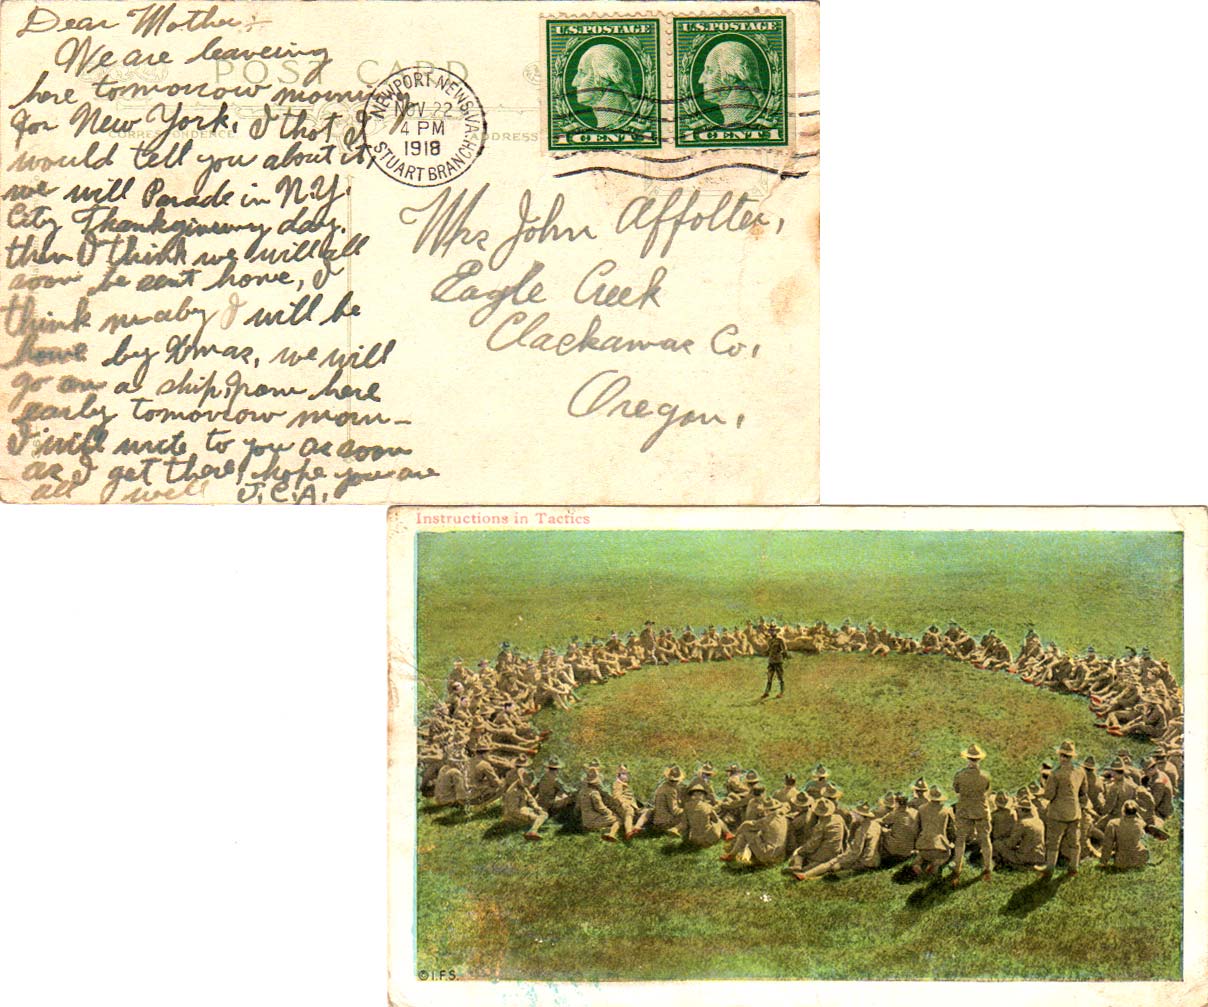 Dear Mother:
We are leaveing
here tomorrow morning
for New York, I thot I
would tell you about it,
we will Parade in N.Y.
City Thanksgiveing day.
then I think we will all
soon be sent home, I
think maby I will be
home by Xmas, we will
go on a ship, from here
early tomorrow morn-
I will write to you as soon
as I get there, hope you are
all well J.C.A.
POST CARD
CORRESPONDENCE
ADDRESS
NEWPORT NEWS, VA.
NOV 22
4 PM
1918
STUART BRANCH
U.S. POSTAGE
1 CENT 1
U.S. POSTAGE
1 CENT 1
Mrs John Affolter,
Eagle Creek
Clackamas Co,
Oregon,
Instructions in Tactics
© I.F.S.